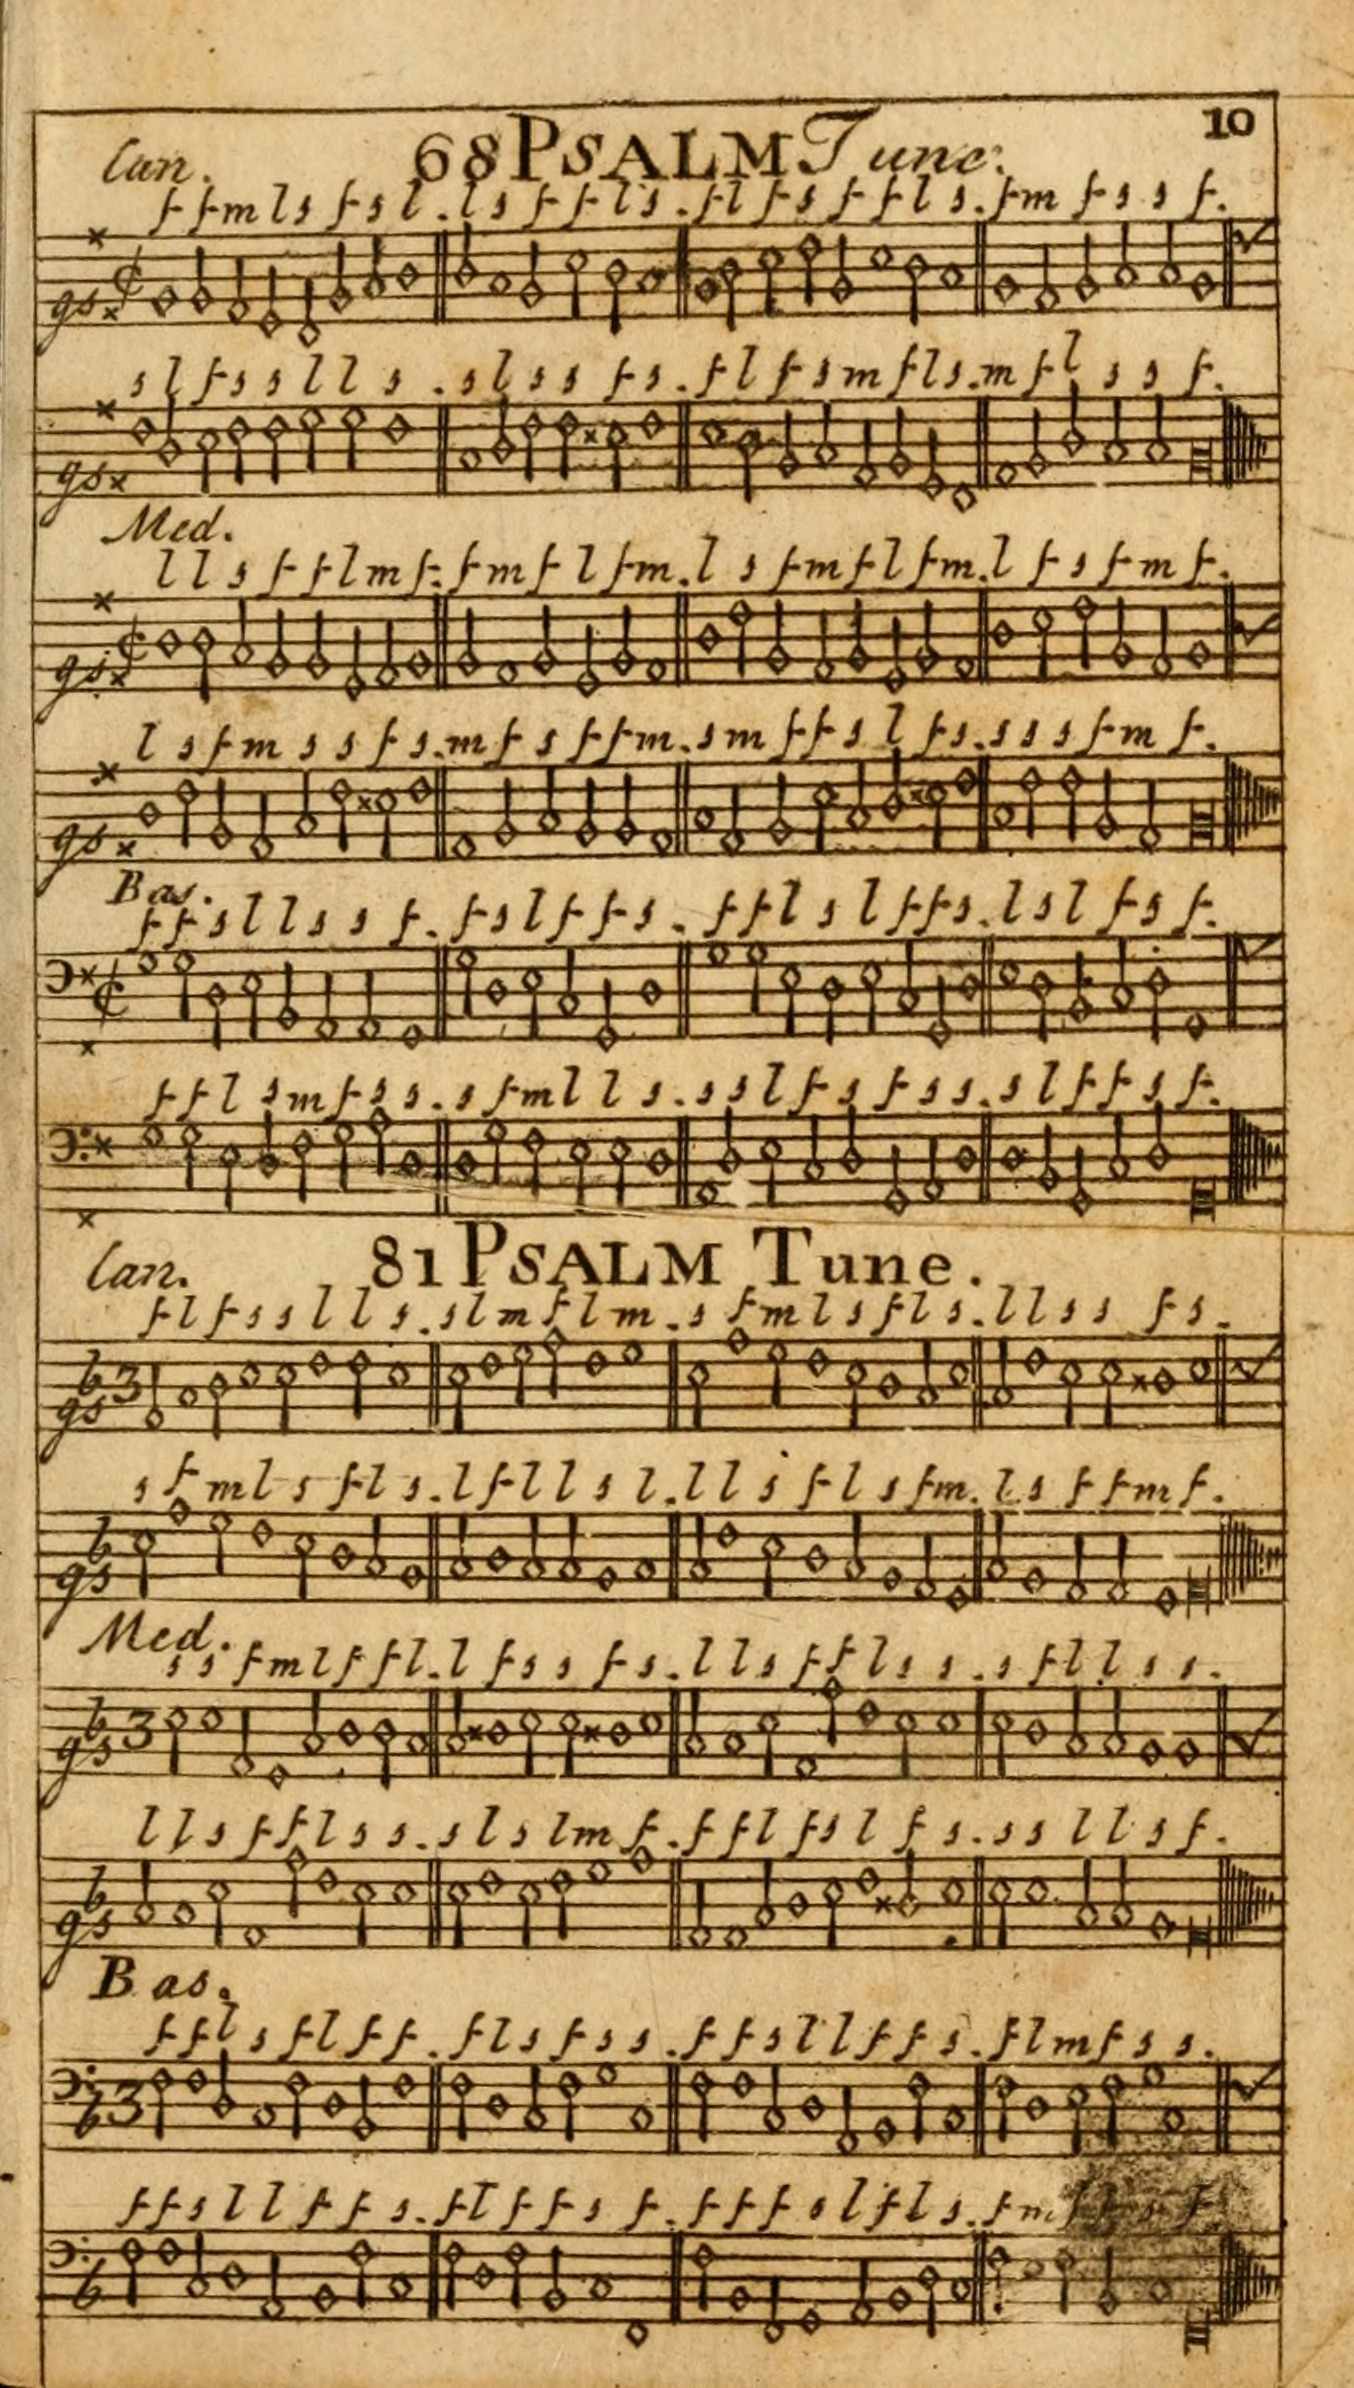 10
Can. 68 PSALM Tune.
f f m l s f s l . l s f f l s . f l f s f f l s . f m f s s f .
gs
s l f s s l l s . s l s s f s . f l f s m f l s . m f l s s f .
gs
Med.
l l s f f l m f . f m f l f m . l s f m f l f m . l f s f m f .
gs
l s f m s s f s . m f s f f m . s m f f s l f s . s s s f m f .
gs
Bas.
f f s l l s s f . f s l f f s . f f l s l f f s . l s l f s f .
f f l s m f s s . s f m l l s . s s l f s f s s . s l f f s f .
Can. 81 PSALM Tune.
f l f s s l l s . s l m f l m . s f m l s f l s . l l s s f s .
b 3 gs
s f m l s f l s . l f l l s l . l l s f l s f m . l s f f m f .
b gs
Med.
s s f m l f f l . l f s s f s . l l s f f l s s . s f l l s s .
b 3 gs
l l s f f l s s . s l s l m f . f f l f s l f s . s s l l s f .
b gs
Bas.
f f l s f l f f . f l s f s s . f f s l l f f s . f l m f s s .
b 3
f f s l l f f s . f l f f s f . f f f s l f l s . f m
b